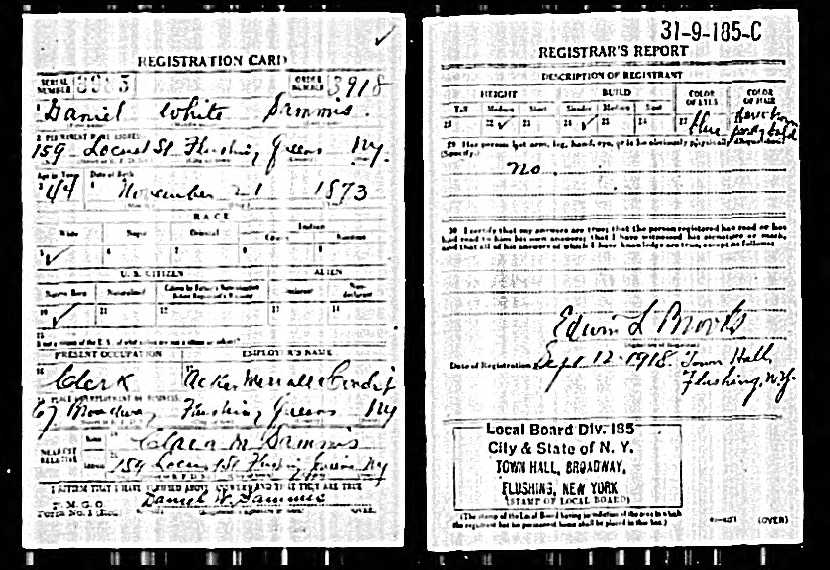 REGISTRATION CARD
SERIAL NUMBER
ORDER NUMBER 3918
1 Daniel White Sammis
2 PERMANENT HOME ADDRESS
159 Locust St Flushing Queens N.Y.
Age in Years Date of Birth
3 44 4 November 21 1873
RACE
White Negro Oriental Indian
Citizen Noncitizen
5 ✓ 6 7 8 9
U. S. CITIZEN ALIEN
Native Born Naturalized Declarant Non-declarant
10 ✓ 11 12 13 14
15
If not a citizen of the U.S. of what nation are you a citizen or subject?
PRESENT OCCUPATION EMPLOYER'S NAME
16 Clerk 17 Acker Merrall & Condit
18 PLACE OF EMPLOYMENT OR BUSINESS
67 Broadway Flushing Queens N.Y
NEAREST RELATIVE Name 19 Clara M Sammis
Address 20 159 Locust St Flushing Queens N.Y
I AFFIRM THAT I HAVE VERIFIED ABOVE ANSWERS AND THAT THEY ARE TRUE
P. M. G. O.
Form No. 1 Daniel W. Sammis (OVER)
31-9-185-C
REGISTRAR'S REPORT
DESCRIPTION OF REGISTRANT
HEIGHT BUILD COLOR OF EYES COLOR OF HAIR
Tall Medium Short Slender Medium Stout
21 22 ✓ 23 24 ✓ 25 26 27 Blue Brown partly bald
29 Has person lost arm, leg, hand, eye, or is he obviously physically disqualified?
(Specify.)
no
30 I certify that my answers are true; that the person registered has read or has
had read to him his own answers; that I have witnessed his signature or mark,
and that all of his answers of which I have knowledge are true, except as follows:
Edwin L Brooks
Date of Registration Sept 12 - 1918. Town Hall
Flushing, N.Y.
Local Board Div. 185
City & State of N. Y.
TOWN HALL, BROADWAY,
FLUSHING, NEW YORK
(STAMP OF LOCAL BOARD)
(The stamp of the Local Board having jurisdiction of the area in which
the registrant has his permanent home shall be placed in this box.)
(OVER)